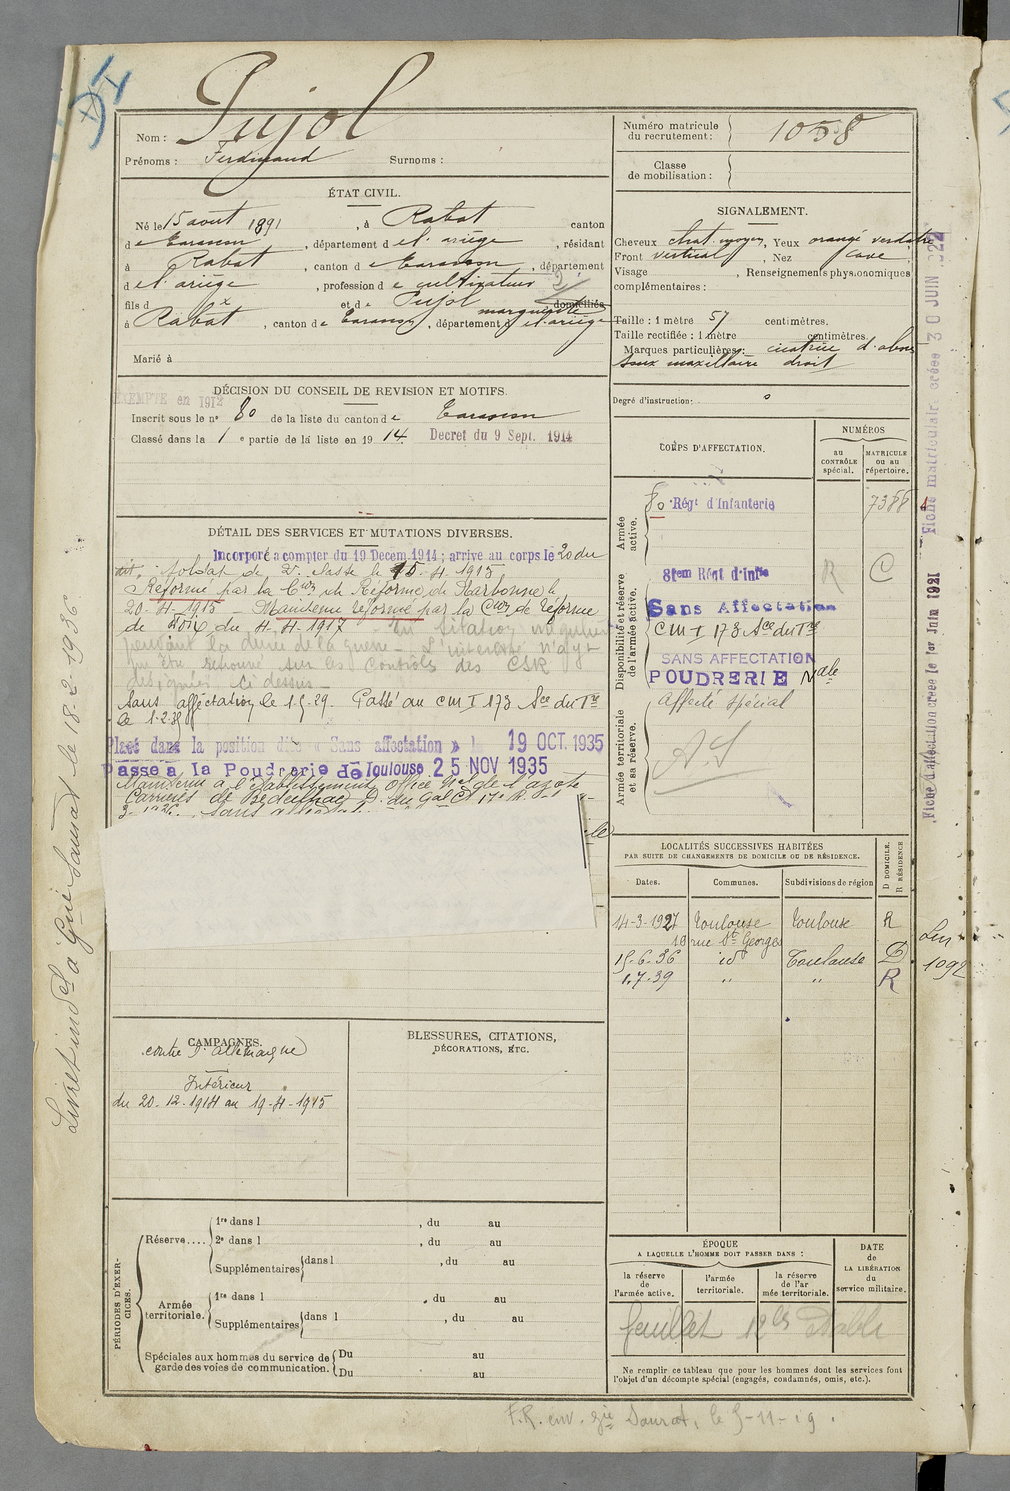 DI
Nom : Pujol
Prénoms : Ferdinand Surnoms :
Numéro matricule du recrutement : 1058
Classe de mobilisation :
ÉTAT CIVIL.
Né le 15 août 1891, à Rabat canton
de Tarascon, département de l'ariège, résidant
à Rabat, canton de Tarascon, département
de l'ariège, profession de cultivateur
fils d x et de Pujol marguerite domiciliés
à Rabat, canton de Tarascon, département de l'ariège
Marié à
SIGNALEMENT.
Cheveux chat. moyen, Yeux orangé verdatre
Front vertical, Nez cave
Visage , Renseignements physionomiques
complémentaires :
Taille : 1 mètre 57 centimètres.
Taille rectifiée : 1 mètre centimètres.
Marques particulières : cicatrice d'abcès
sous maxillaire droit
Degré d'instruction : 0
DÉCISION DU CONSEIL DE REVISION ET MOTIFS.
EXEMPTÉ en 1912
Inscrit sous le n° 80 de la liste du canton de Tarascon
Classé dans la 1 e partie de la liste en 1914. Decret du 9 Sept. 1914
CORPS D'AFFECTATION.
NUMÉROS
au CONTRÔLE spécial.
MATRICULE ou au répertoire.
Armée active.
80 Régt d'Infanterie 7388
Disponibilité et réserve de l'armée active.
81em Régt d'Infie R C
Sans Affectation
CM I 173 Sce du Tre
SANS AFFECTATION
POUDRERIE Nale
Armée territoriale et sa réserve.
Affecté spécial
A.S
DÉTAIL DES SERVICES ET MUTATIONS DIVERSES.
Incorporé a compter du 19 Decem. 1914 ; arrive au corps le 20 du
dit, soldat de 2e classe le 15-4-1915
Réformé par la Con de Réforme de Narbonne le
20-4-1915 - Maintenu réformé par la Con de réforme
de Foix du 4-4-1917 - En situation
pendant la durée de la guerre - L'intéressé n'ayt
pu être retrouvé sur les Contrôles des CSR
désignés ci dessus -
Sans affectation le 1.5.29. Passé au CM I 173 Sce du Tre
le 1.2.
Placé dans la position dite « Sans affectation » le 19 OCT. 1935
Passé à la Poudrerie de Toulouse 25 NOV 1935
Maintenu à l'établissement Office Nal de l'azote
Carrières de Bedeilhac
LOCALITÉS SUCCESSIVES HABITÉES
PAR SUITE DE CHANGEMENTS DE DOMICILE OU DE RÉSIDENCE.
Dates. Communes. Subdivisions de région D DOMICILE. R RÉSIDENCE
14-3-1927 Toulouse Toulouse R
10 rue St Georges
15.6.36 id Toulouse D
1.7.39 " " R
CAMPAGNES.
contre l'allemagne
Intérieur
du 20-12-1914 au 19-4-1915
BLESSURES, CITATIONS,
DÉCORATIONS, ETC.
PÉRIODES D'EXERCICES.
Réserve....
1re dans l , du au
2e dans l , du au
Supplémentaires dans l , du au
Armée territoriale.
1re dans l , du au
Supplémentaires dans l , du au
Spéciales aux hommes du service de garde des voies de communication.
Du au
Du au
ÉPOQUE
A LAQUELLE L'HOMME DOIT PASSER DANS :
la réserve de l'armée active.
l'armée territoriale.
la réserve de l'armée territoriale.
DATE de LA LIBÉRATION du service militaire.
feuillet établi
Ne remplir ce tableau que pour les hommes dont les services font
l'objet d'un décompte spécial (engagés, condamnés, omis, etc.).
F.R. env. gie Saurat, le 5-11-19.
Livret indel à Gie Saurat le 18-2-1936
Fiche matriculaire créée 30 JUIN 1922
Fiche d'affectation créée le 1er Juin 1921
1092